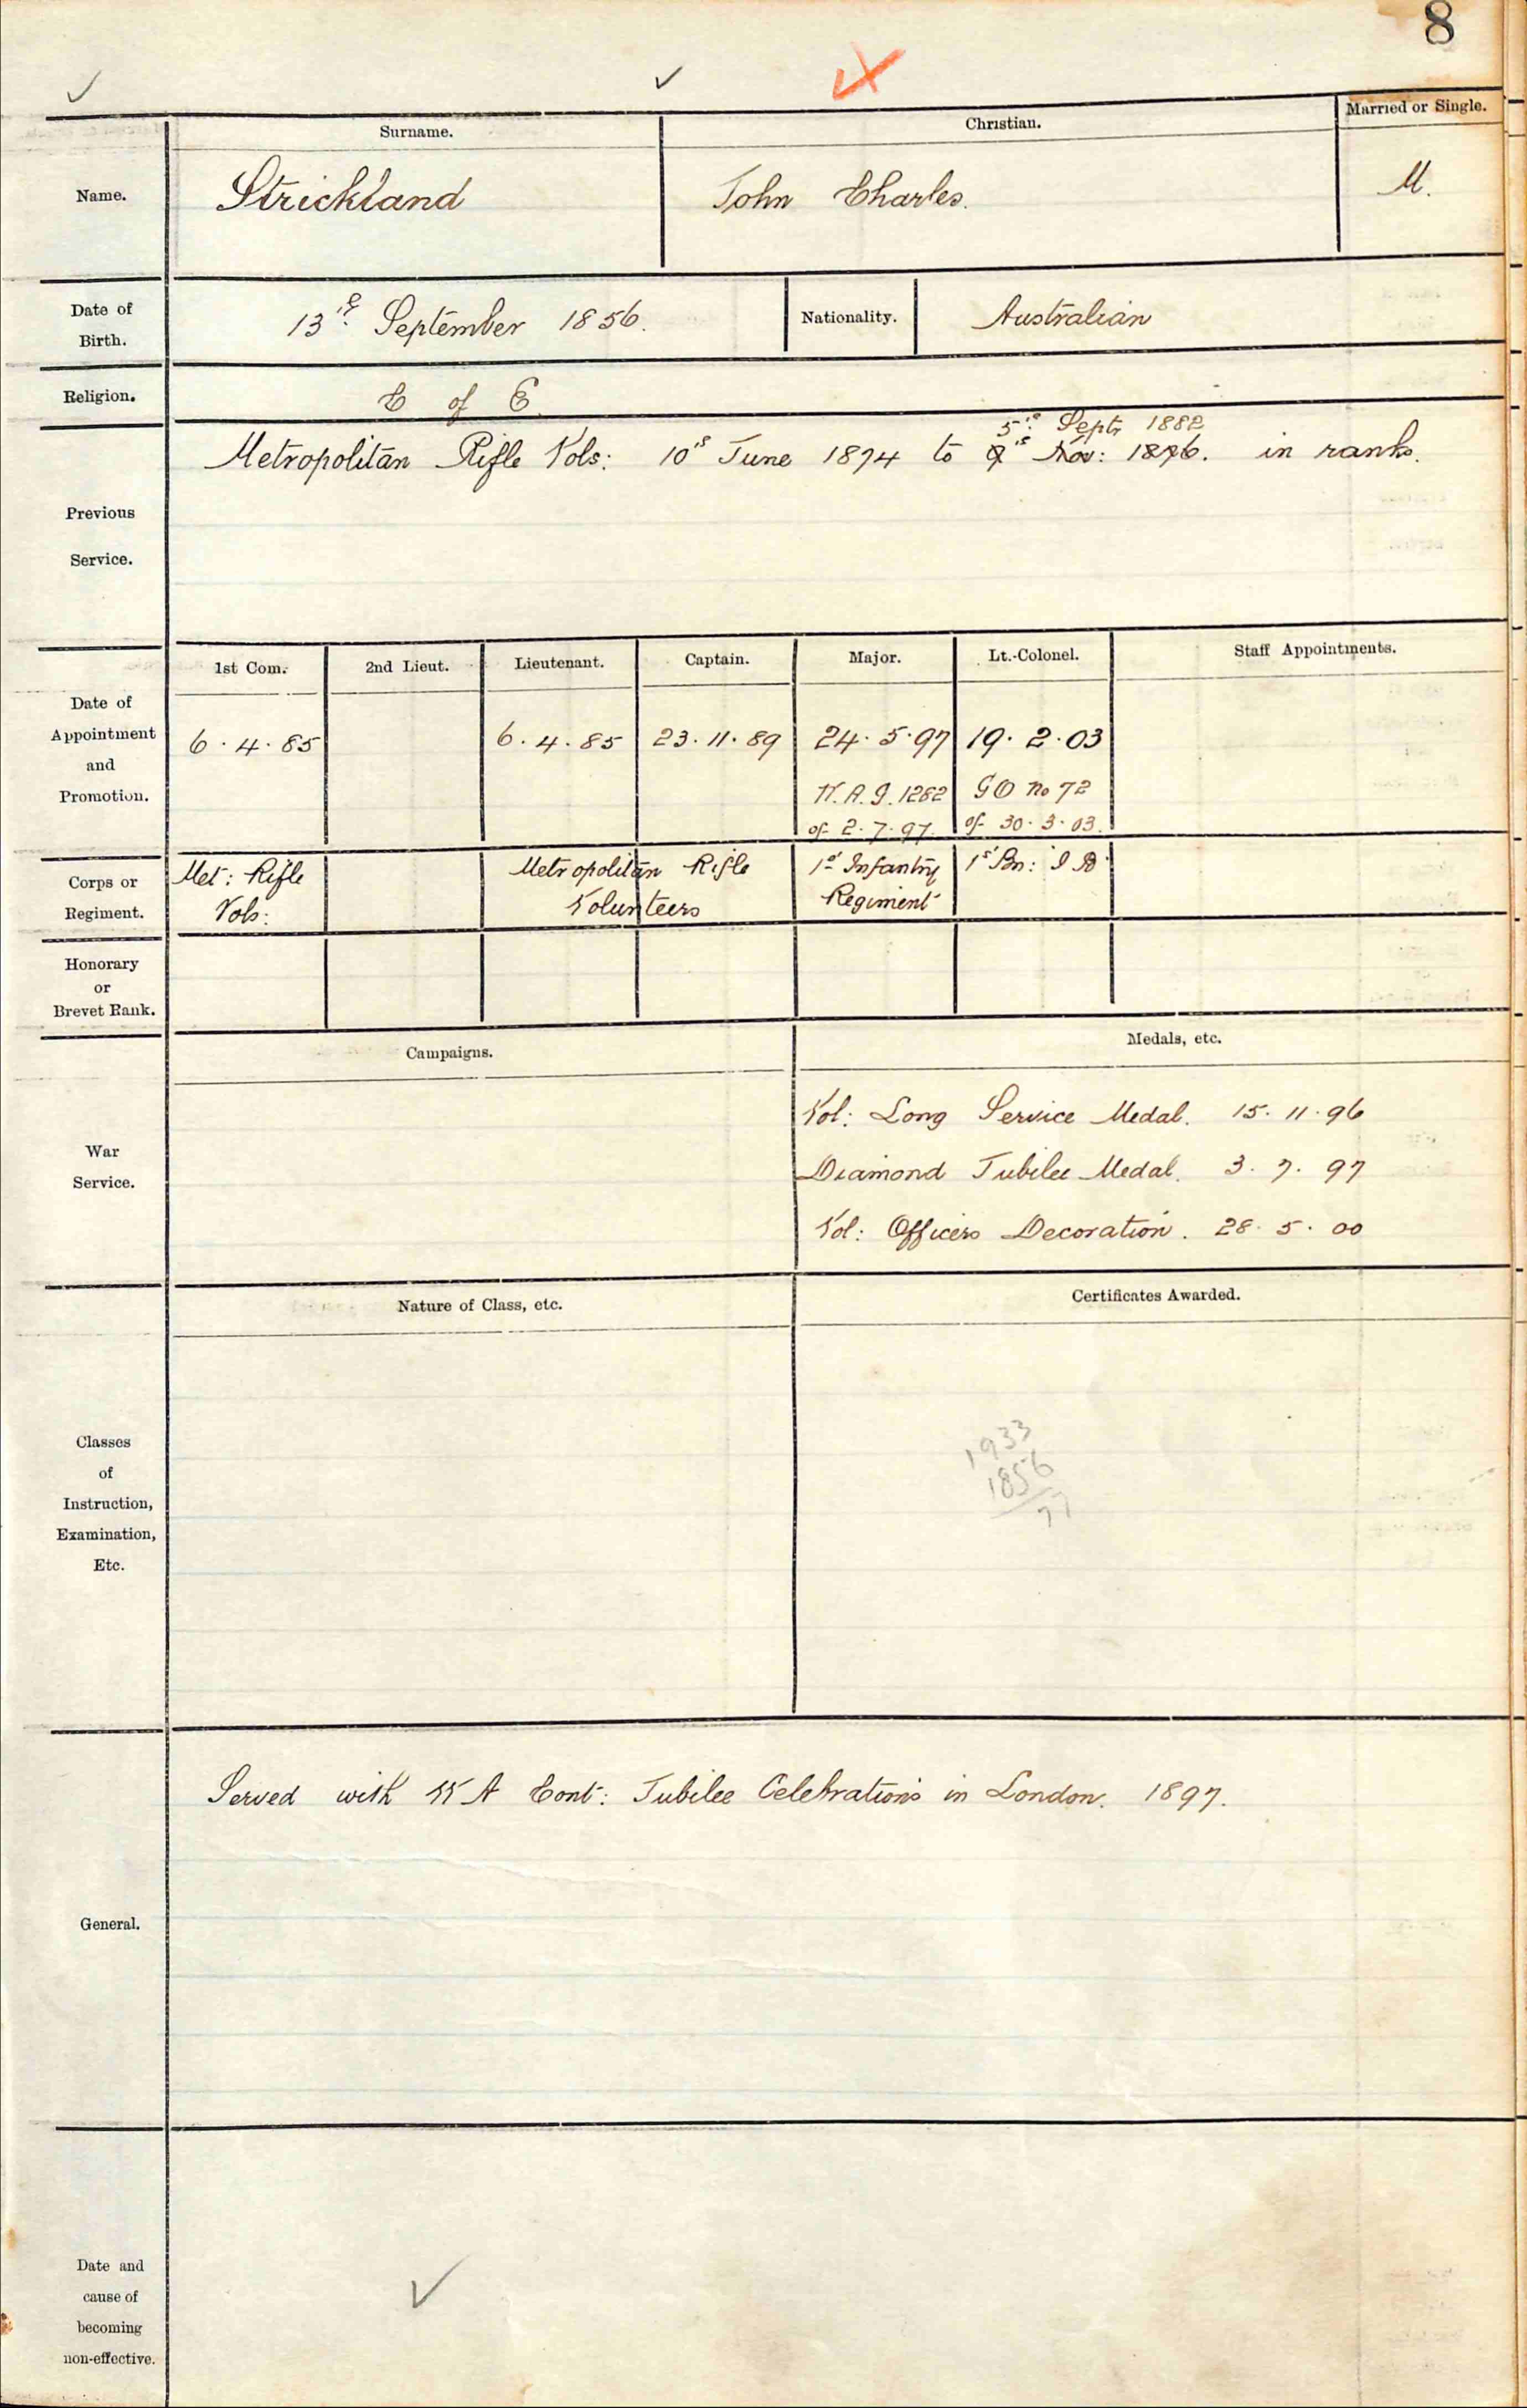 8
Surname.
Christian.
Married or Single.
Name.
Strickland
John Charles.
M.
Date of
Birth.
13th September 1856.
Nationality.
Australian
Religion.
C of E.
5th Septr 1882
Metropolitan Rifle Vols: 10th June 1874 to 9th Nov: 1876. in ranks.
Previous
Service.
1st Com.
2nd Lieut.
Lieutenant.
Captain.
Major.
Lt.-Colonel.
Staff Appointments.
Date of
Appointment
and
Promotion.
6.4.85
6.4.85
23.11.89
24.5.97
19.2.03
W.A.G. 1282
of 2.7.97.
GO No 72
of 30.3.03.
Corps or
Regiment.
Met: Rifle
Vols:
Metropolitan Rifle
Volunteers
1st Infantry
Regiment
1st Bn: I B
Honorary
or
Brevet Rank.
Campaigns.
Medals, etc.
War
Service.
Vol: Long Service Medal. 15.11.96
Diamond Jubilee Medal. 3.7.97
Vol: Officers Decoration. 28.5.00
Nature of Class, etc.
Certificates Awarded.
Classes
of
Instruction,
Examination,
Etc.
1933
1856
77
General.
Served with W A Cont: Jubilee Celebrations in London. 1897.
Date and
cause of
becoming
non-effective.